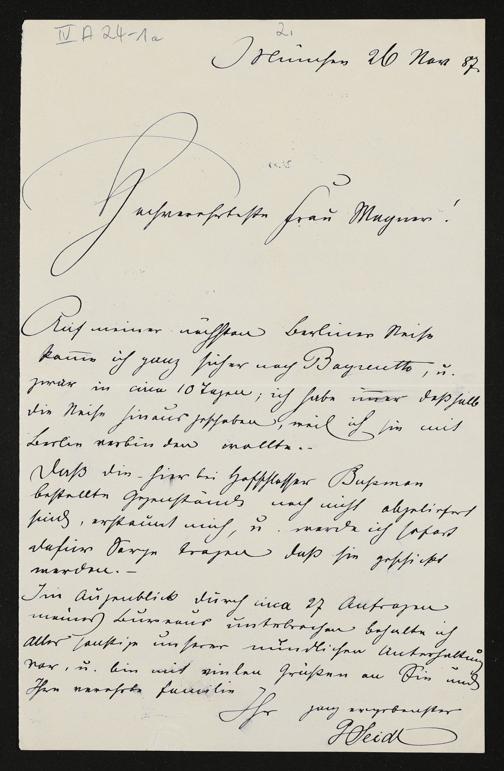 IV A 24-1a
2.
München 26 Nov 87.
Hochverehrteste Frau Wagner!
Auf meiner nächsten Berliner Reise
komme ich ganz sicher nach Bayreuth, u.
zwar in circa 10 Tagen; ich habe immer deßhalb
die Reise hinausgeschoben, weil ich sie mit
Berlin verbinden wollte.-
Daß die hier bei Hofschlosser Bußmann
bestellten Gegenstände noch nicht abgeliefert
sind, erstaunt mich, u. werde ich sofort
dafür Sorge tragen daß sie geschickt
werden.-
Im Augenblick durch circa 27 Anfragen
meines Bureaus unterbrochen behalte ich
alles sonstige unserer mündlichen Unterhaltung
vor, u. bin mit vielen Grüßen an Sie und
Ihre verehrte Familie
Ihr ganz ergebenster
GSeidl